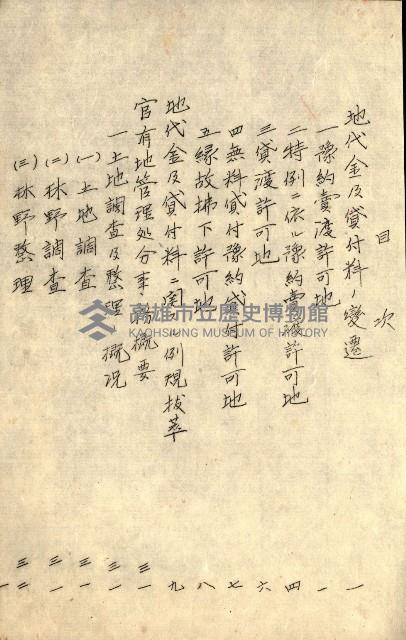 目次
地代金及貸付料ノ變遷 一
一豫約賣渡許可地 一
二特例ニ依ル豫約賣渡許可地 四
三貸渡許可地 六
四無料貸付豫約貸付許可地 七
五縁故拂下許可地 八
地代金及貸付料ニ関スル例規拔萃 九
官有地管理処分事務概要 三一
一土地調査及整理ノ概况 三一
(一)土地調査 三一
(二)林野調査 三一
(三)林野整理 三二
高雄市立歷史博物館
KAOHSIUNG MUSEUM OF HISTORY